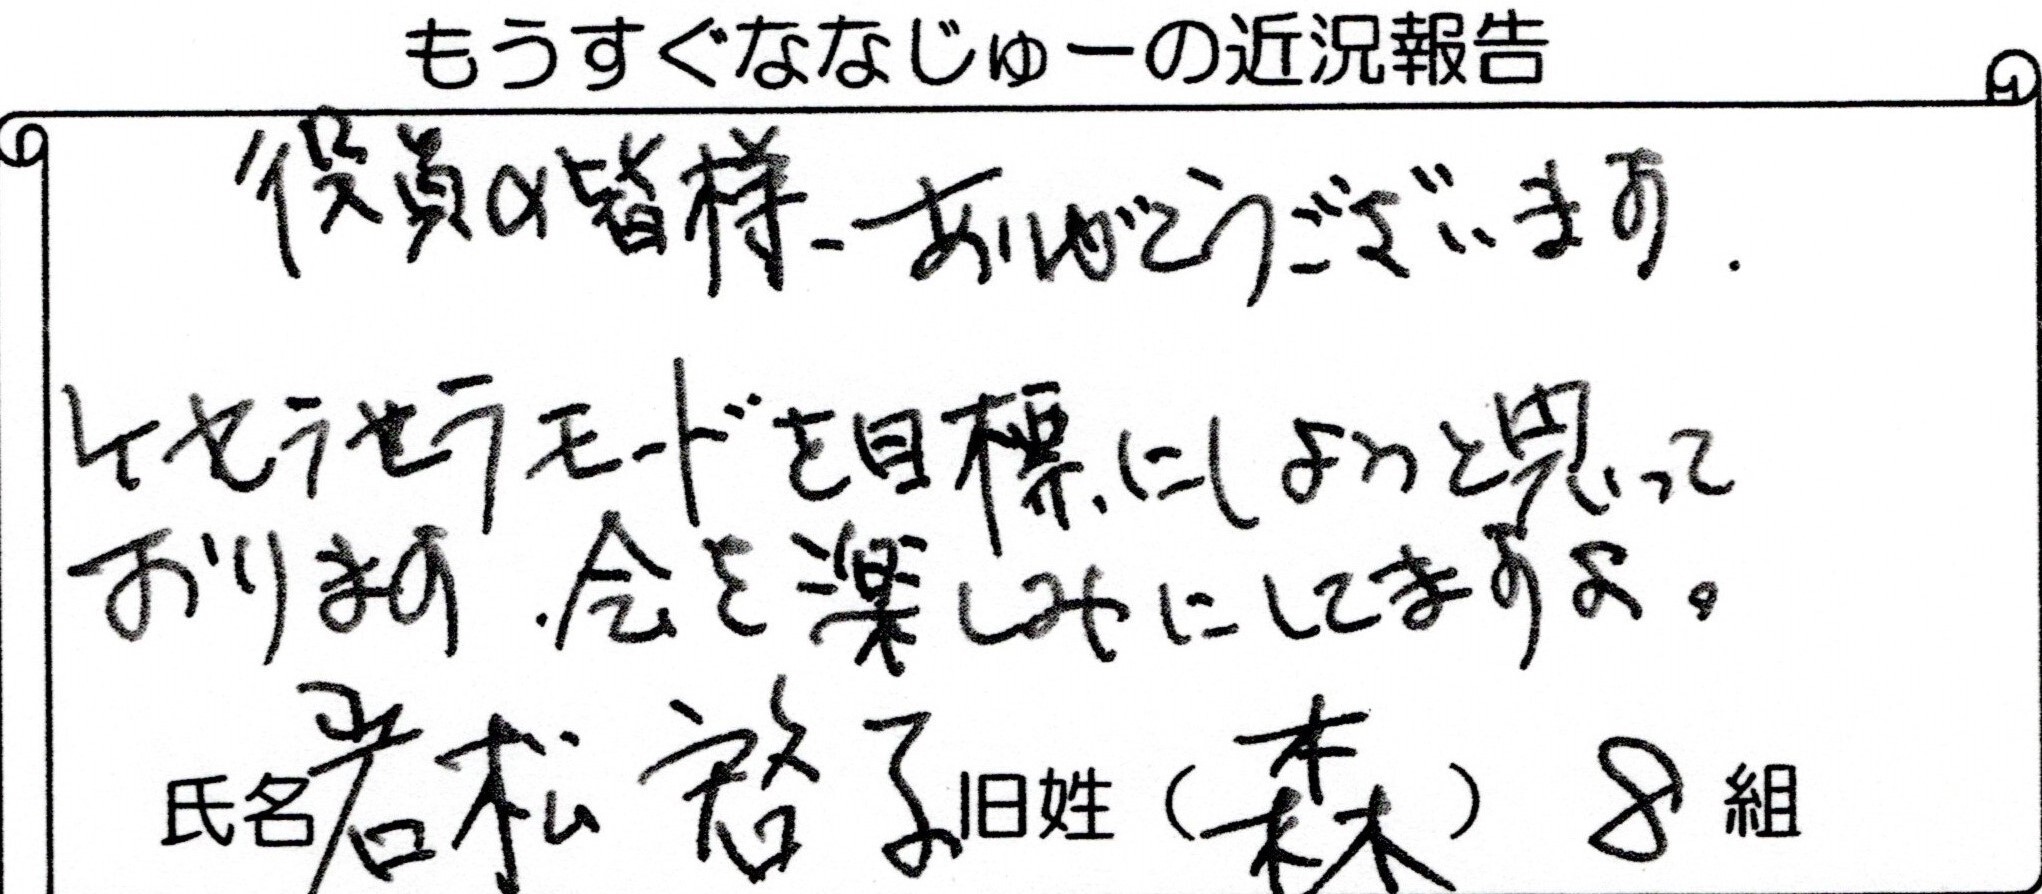 もうすぐななじゅーの近況報告
役員の皆様、ありがとうございます.
ケセラセラモードを目標にしようと思って
おります.会を楽しみにしてますよ。
氏名 若松 啓子 旧姓（森） 8 組